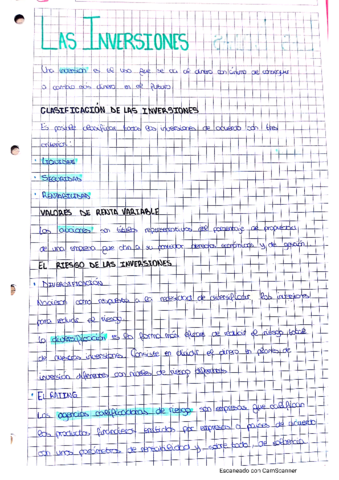 LAS INVERSIONES
Una inversión es el uso que se da al dinero
a cambio más dinero en el futuro.
CLASIFICACIÓN DE LAS INVERSIONES
Es posible clasificar todas las inversiones de acuerdo con tres
criterios:
· LIQUIDEZ
· SEGURIDAD
· RENTABILIDAD
VALORES DE RENTA VARIABLE
Las acciones son títulos representativos del porcentaje de propiedad
de una empresa que otorga a su poseedor derechos económicos y de gestión.
EL RIESGO DE LAS INVERSIONES
· DIVERSIFICACIÓN
como respuesta a la necesidad de diversificar las inversiones
para reducir el riesgo.
La diversificación es la forma más eficaz de reducir el riesgo total
de nuestras inversiones. Consiste en dividir el dinero en
inversión diferentes con niveles de riesgo diferentes.
· EL RATING
Las agencias calificadoras de riesgo son empresas que califican
los productos financieros emitidos por empresas o países de acuerdo
con unos parámetros de y sobre todo de solvencia.
Escaneado con CamScanner